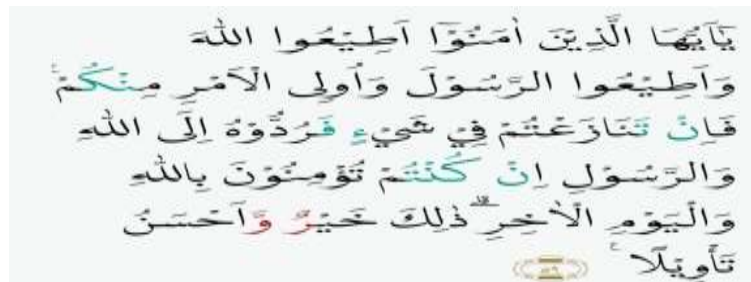 يٰۤاَيُّهَا الَّذِيْنَ اٰمَنُوْۤا اَطِيْعُوا اللّٰهَ
وَاَطِيْعُوا الرَّسُوْلَ وَاُولِى الْاَمْرِ مِنْكُمْۚ
فَاِنْ تَنَازَعْتُمْ فِيْ شَيْءٍ فَرُدُّوْهُ اِلَى اللّٰهِ
وَالرَّسُوْلِ اِنْ كُنْتُمْ تُؤْمِنُوْنَ بِاللّٰهِ
وَالْيَوْمِ الْاٰخِرِۗ ذٰلِكَ خَيْرٌ وَّاَحْسَنُ
تَأْوِيْلًا ࣖ ٥٩